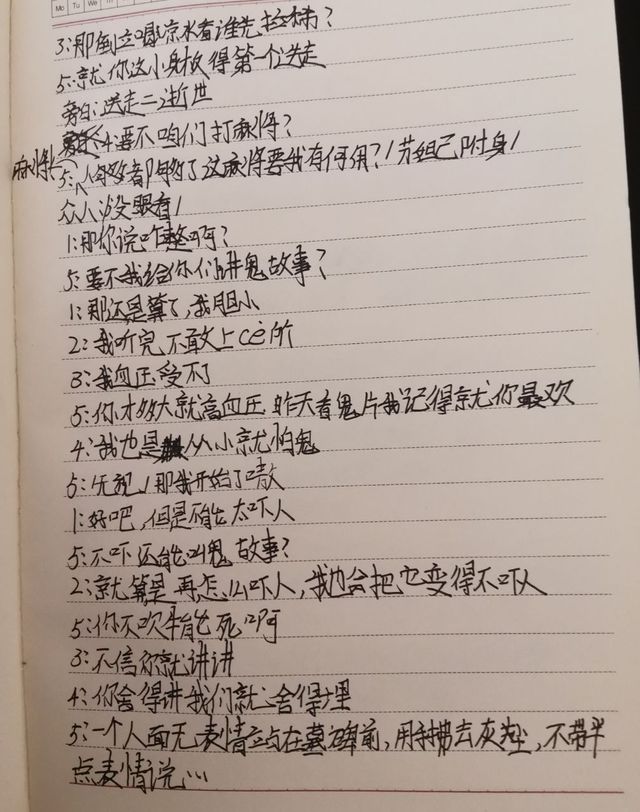 Mo Tu We
3:那倒立喝凉水看谁先拉稀?
5:就你这小身板得第一个送走
旁白:送走=逝世
4:要不咱们打麻将?
5:人够数者都够了这麻将要我有何用?/苏妲己附身/
众人:/没眼看/
1:那你说咋整啊?
5:要不我给你们讲鬼故事?
1:那还是算了,我胆小
2:我听完不敢上cè所
3:我血压受不了
5:你才多大就高血压 昨天看鬼片我记得就你最欢
4:我也是从小就怕鬼
5:/无视/那我开始了嗷
1:好吧,但是不能太吓人
5:不吓还能叫鬼故事?
2:就算是再怎么吓人,我也会把它变得不吓人
5:你不吹牛能死啊
3:不信你就讲讲
4:你舍得讲我们就舍得埋
5:一个人面无表情立站在墓碑前,用手拂去灰尘,不带半
点表情说…